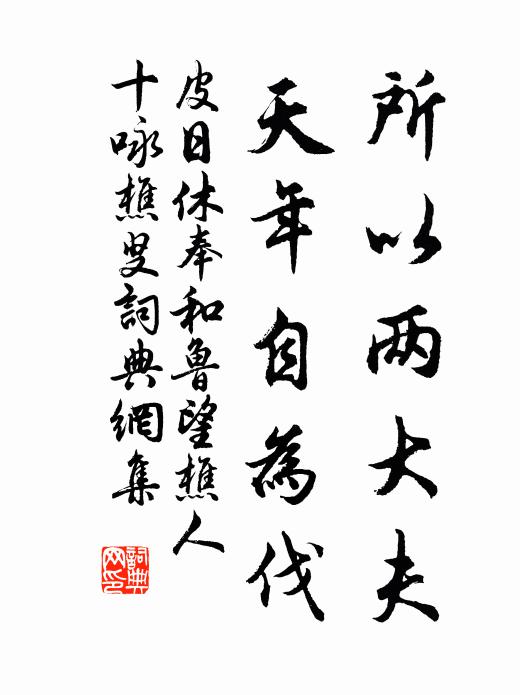 所以两大夫
天年自為伐
皮日休奉和魯望樵人
十咏樵叟詞典網集
詞典网印